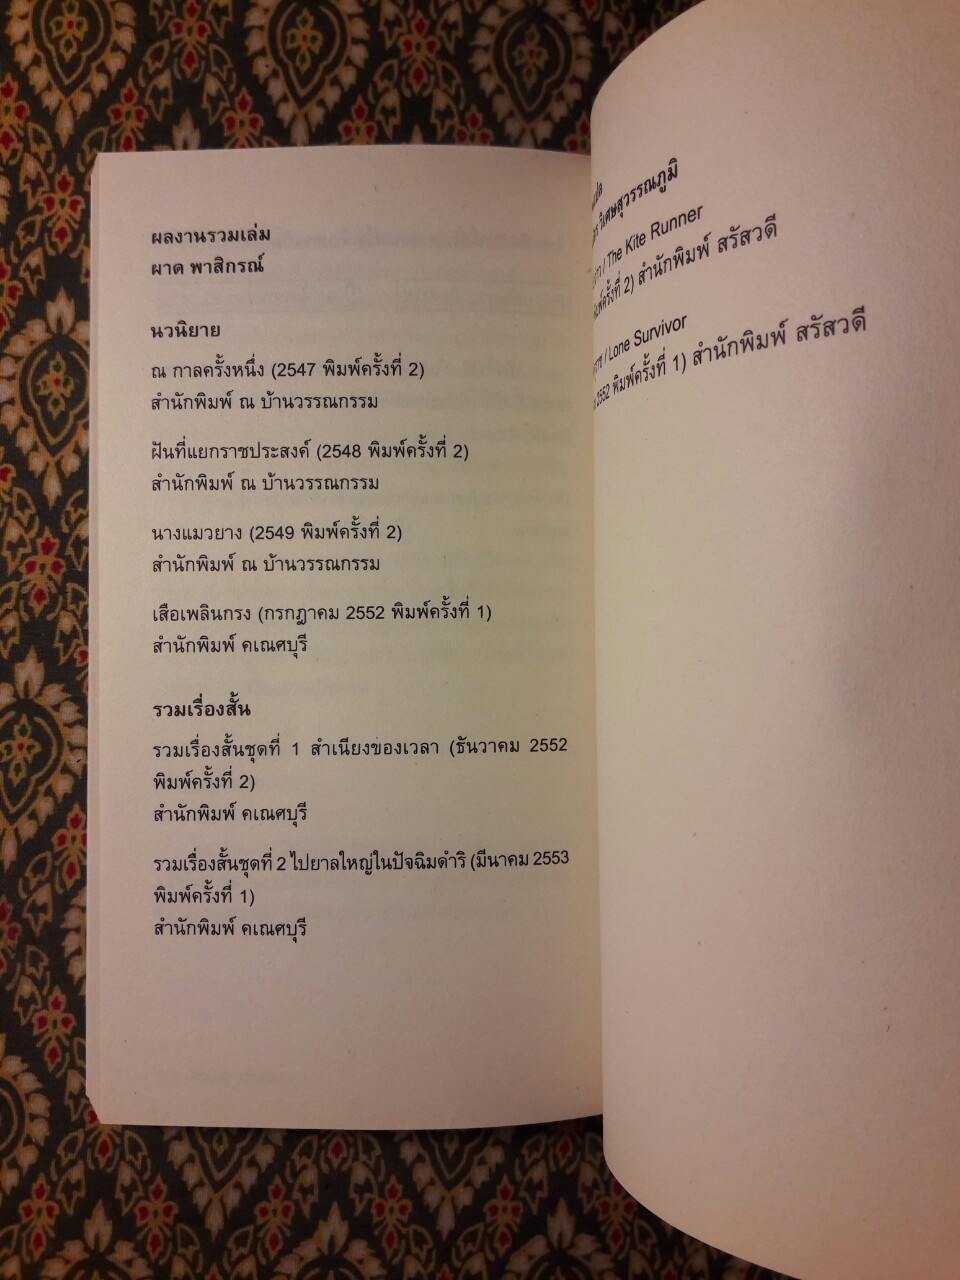 ผลงานรวมเล่ม
ผาด พาสิกรณ์
นวนิยาย
ณ กาลครั้งหนึ่ง (2547 พิมพ์ครั้งที่ 2)
สำนักพิมพ์ ณ บ้านวรรณกรรม
ฝันที่แยกราชประสงค์ (2548 พิมพ์ครั้งที่ 2)
สำนักพิมพ์ ณ บ้านวรรณกรรม
นางแมวยาง (2549 พิมพ์ครั้งที่ 2)
สำนักพิมพ์ ณ บ้านวรรณกรรม
เสือเพลินกรง (กรกฎาคม 2552 พิมพ์ครั้งที่ 1)
สำนักพิมพ์ คเณศบุรี
รวมเรื่องสั้น
รวมเรื่องสั้นชุดที่ 1 สำเนียงของเวลา (ธันวาคม 2552
พิมพ์ครั้งที่ 2)
สำนักพิมพ์ คเณศบุรี
รวมเรื่องสั้นชุดที่ 2 ไปยาลใหญ่ในปัจฉิมดำริ (มีนาคม 2553
พิมพ์ครั้งที่ 1)
สำนักพิมพ์ คเณศบุรี
วิเศษสุวรรณภูมิ
/ The Kite Runner
พิมพ์ครั้งที่ 2) สำนักพิมพ์ สรัสวดี
/ Lone Survivor
2552 พิมพ์ครั้งที่ 1) สำนักพิมพ์ สรัสวดี